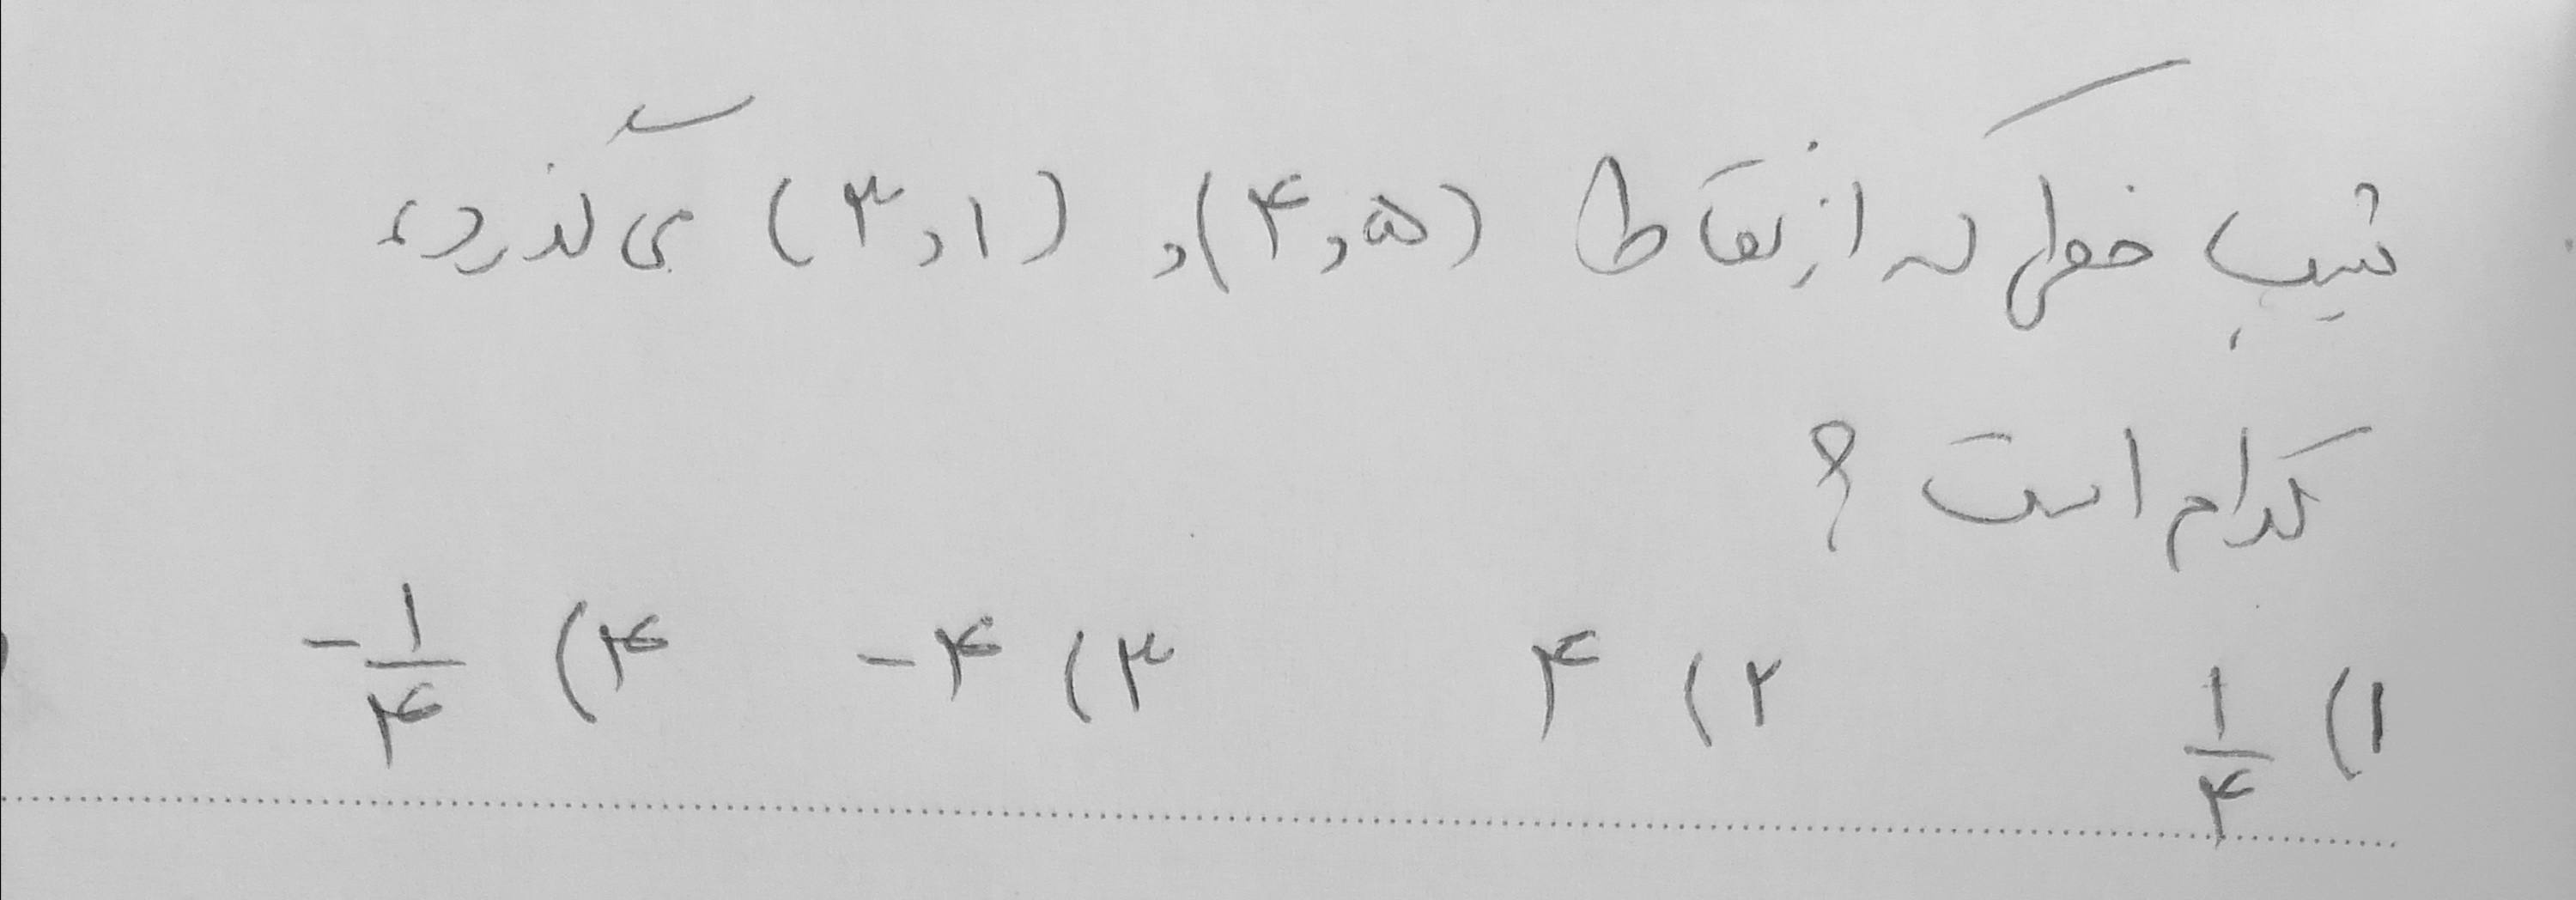 شیب خطی که از نقاط (۴,۵) و (۳,۱) می گذرد،
کدام است ؟
۱) ۱/۴ ۲) ۴ ۳) -۴ ۴) -۱/۴